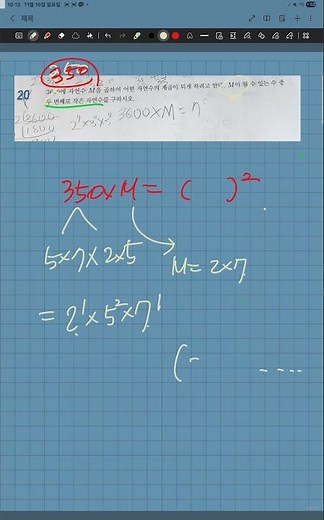 10:13 11월 16일 일요일
제목
350
20
에 자연수 M을 곱하여 어떤 자연수의 제곱이 되게 하려고 한다. M이 될 수 있는 수 중
두 번째로 작은 자연수를 구하시오.
2)3600
1800
3600×M=
350×M=( )²
5×7×2×5
M=2×7
=2¹×5²×7¹
(-
....